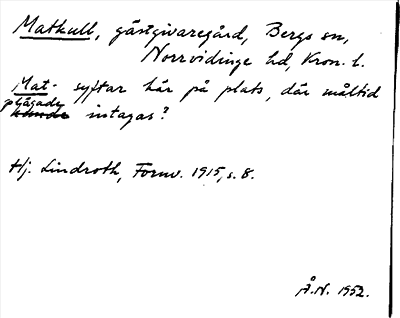 Matkull, gästgivaregård, Bergs sn,
Norrvidinge hd, Kron. l.
Mat- syftar här på plats, där måltid
plägade kunde intagas?
Hj. Lindroth, Fornv. 1915, s. 8.
Å.N. 1952.